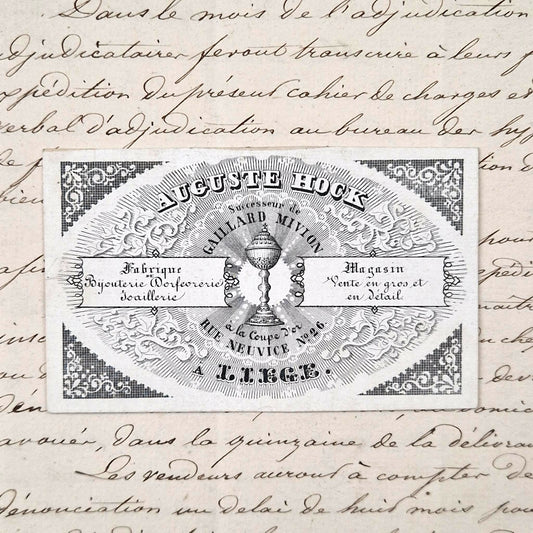 Dans le mois de l'adjudication
adjudicataires feront transcrire à leurs
expédition du présent cahier de charges et
verbal d'adjudication au bureau des
AUGUSTE HOCK
Successeur de
GAILLARD MIVION
Fabrique
Bijouterie Dorfévrerie
Joaillerie
Magasin
Vente en gros et
en détail
à la Coupe d'or
RUE NEUVICE No. 26.
A LIEGE.
avoué, dans la quinzaine de la
Les vendeurs auront à compter de
dénonciation un délai de huit mois